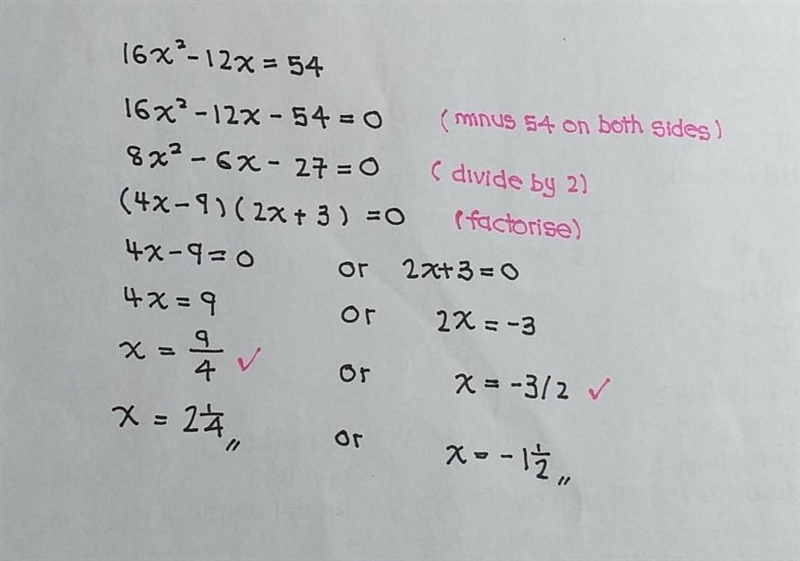 16x² - 12x = 54
16x² - 12x - 54 = 0 (minus 54 on both sides)
8x² - 6x - 27 = 0 (divide by 2)
(4x - 9)(2x + 3) = 0 (factorise)
4x - 9 = 0 or 2x + 3 = 0
4x = 9 or 2x = -3
x = 9/4 ✓ or x = -3/2 ✓
x = 2 1/4 or x = -1 1/2